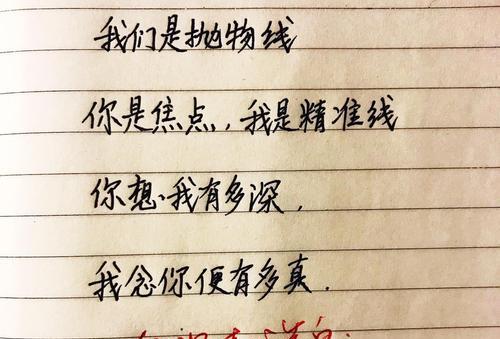 我们是抛物线
你是焦点，我是精准线
你想我有多深，
我念你便有多真.